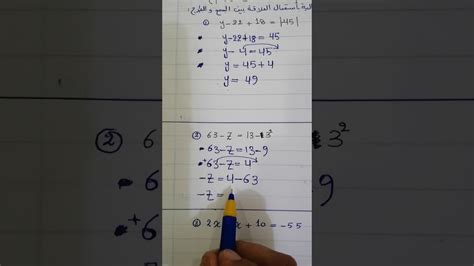 بأستعمال العلاقة بين الجمع والطرح:
① y-22+18 = |45|
• y-22+18 = 45
• y-4=45
• y = 45+4
y = 49
② 63-Z = 13-3²
• 63-Z=13-9
• +63-Z=4
-Z = 4-63
-Z =
③ 2x x + 10 = -55